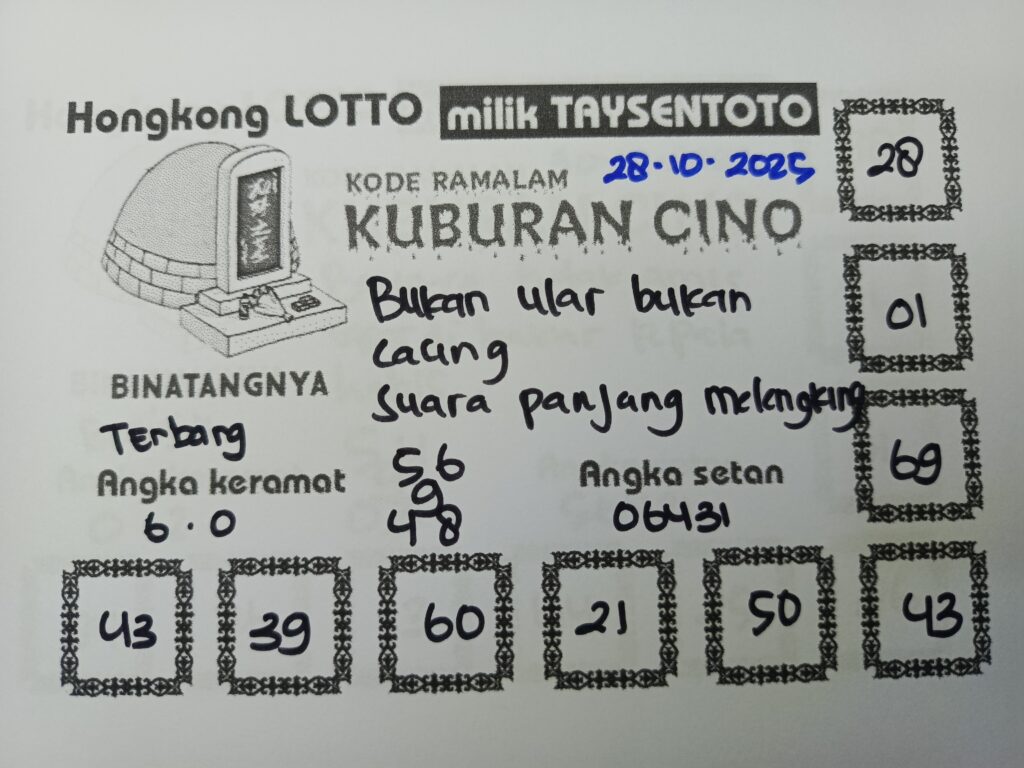 Hongkong LOTTO milik TAYSENTOTO
28.10.2025
KODE RAMALAM
KUBURAN CINO
Bukan ular bukan
cacing
Suara panjang melengking
BINATANGNYA
Terbang
Angka keramat
6.0
56
9
48
Angka setan
06431
28
01
69
43
39
60
21
50
43